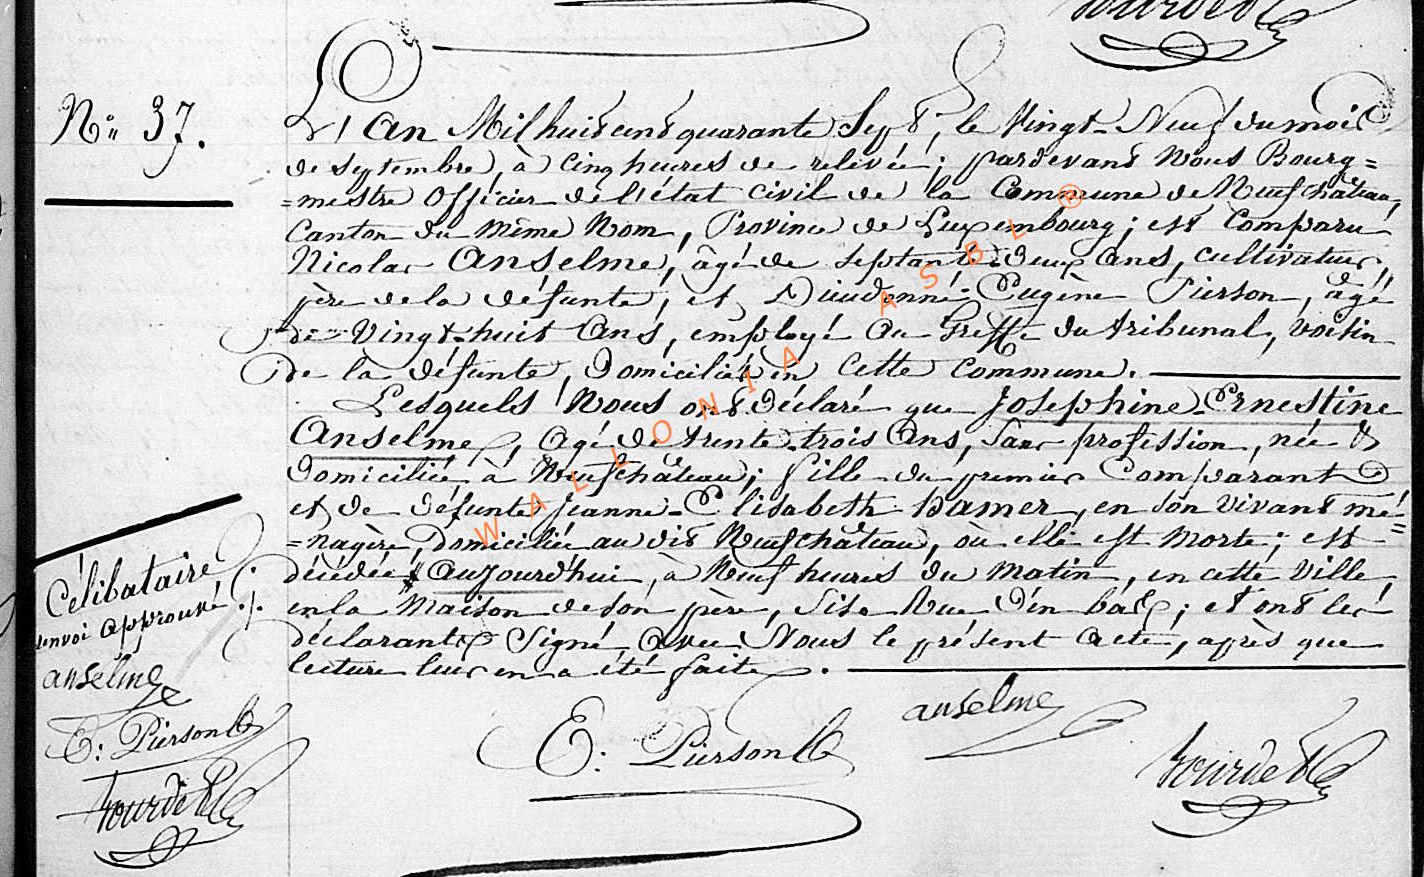 Nº 37.
L'an Mil huit cent quarante Sept, le Vingt-Neuf du mois
de septembre, à cinq heures de relevée; pardevant Nous Bourg=
=mestre Officier de l'état civil de la Commune de Neufchâteau,
Canton du même Nom, Province de Luxembourg; est Comparu
Nicolas Anselme, âgé de septante-deux ans, cultivateur,
père de la défunte, et Dieudonné-Eugène Pierson, âgé
de Vingt-huit Ans, employé au Greffe du tribunal, voisin
de la défunte, Domiciliés en cette Commune.
Lesquels Nous ont Déclaré que Josephine-Ernestine
Anselme, Agé de trente-trois Ans, sans profession, née &
Domiciliée à Neufchâteau; fille du premier Comparant
et de défunte Jeanne-Elisabeth Hamer, en son Vivant mé=
=nagère, Domiciliée au dit Neufchâteau, où elle est Morte; est
décédée aujourd'hui, à Neuf heures du Matin, en cette Ville,
en la Maison de son père, Sise Rue D'en bas; et ont les
déclarants Signé, avec Nous le présent acte, après que
lecture leur en a été faite.
Célibataire
renvoi approuvé
anselme
E: Pierson
Bourdet
anselme
E: Pierson
Bourdet
WALLONIA ASBL ®